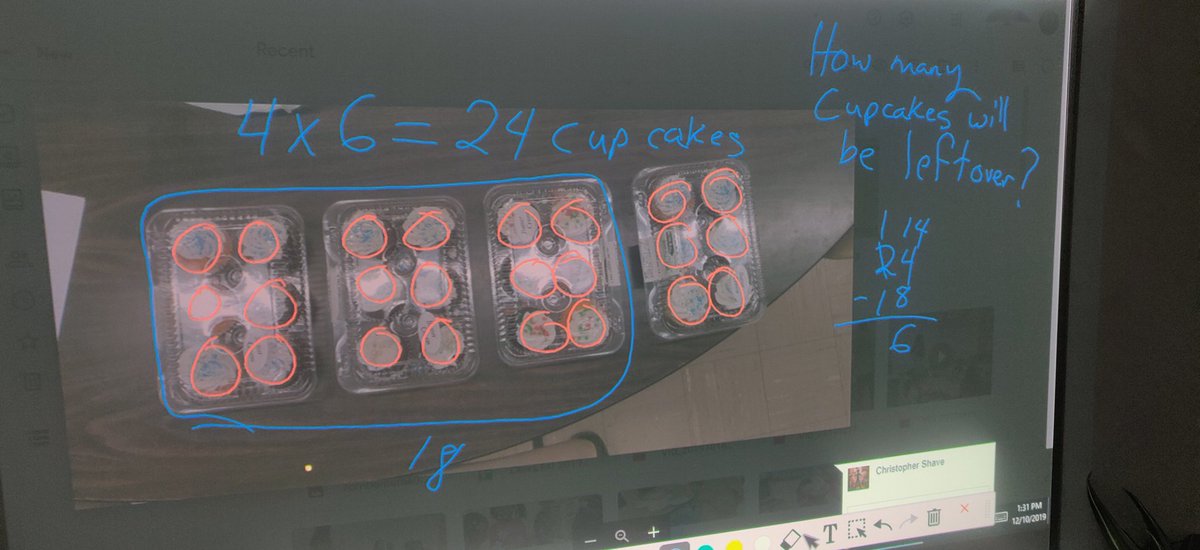 New
Recent
4 x 6 = 24 cup cakes
How many
Cupcakes will
be leftover?
1 14
24
- 18
6
18
Christopher Shave
T
1:31 PM
12/10/2019